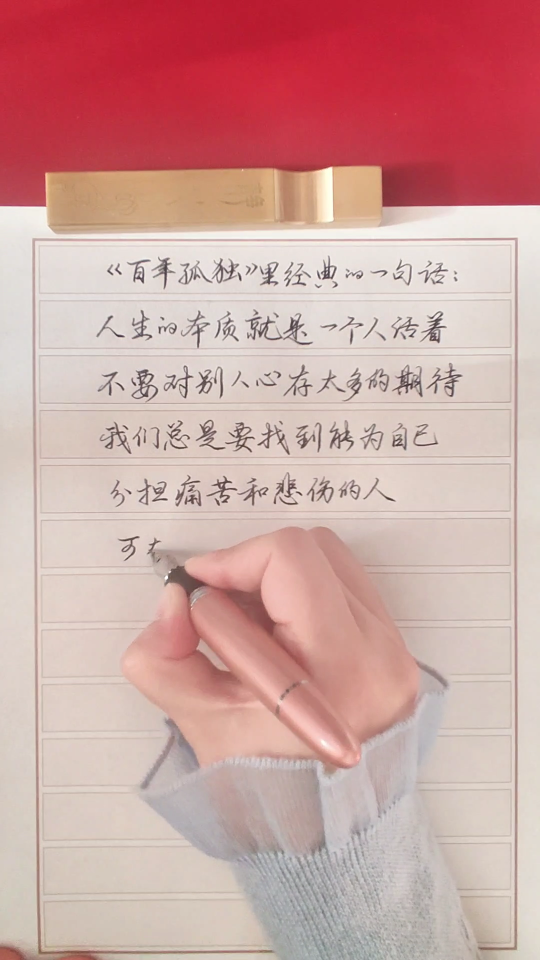 《百年孤独》里经典的一句话：
人生的本质就是一个人活着
不要对别人心存太多的期待
我们总是要找到能为自己
分担痛苦和悲伤的人
可